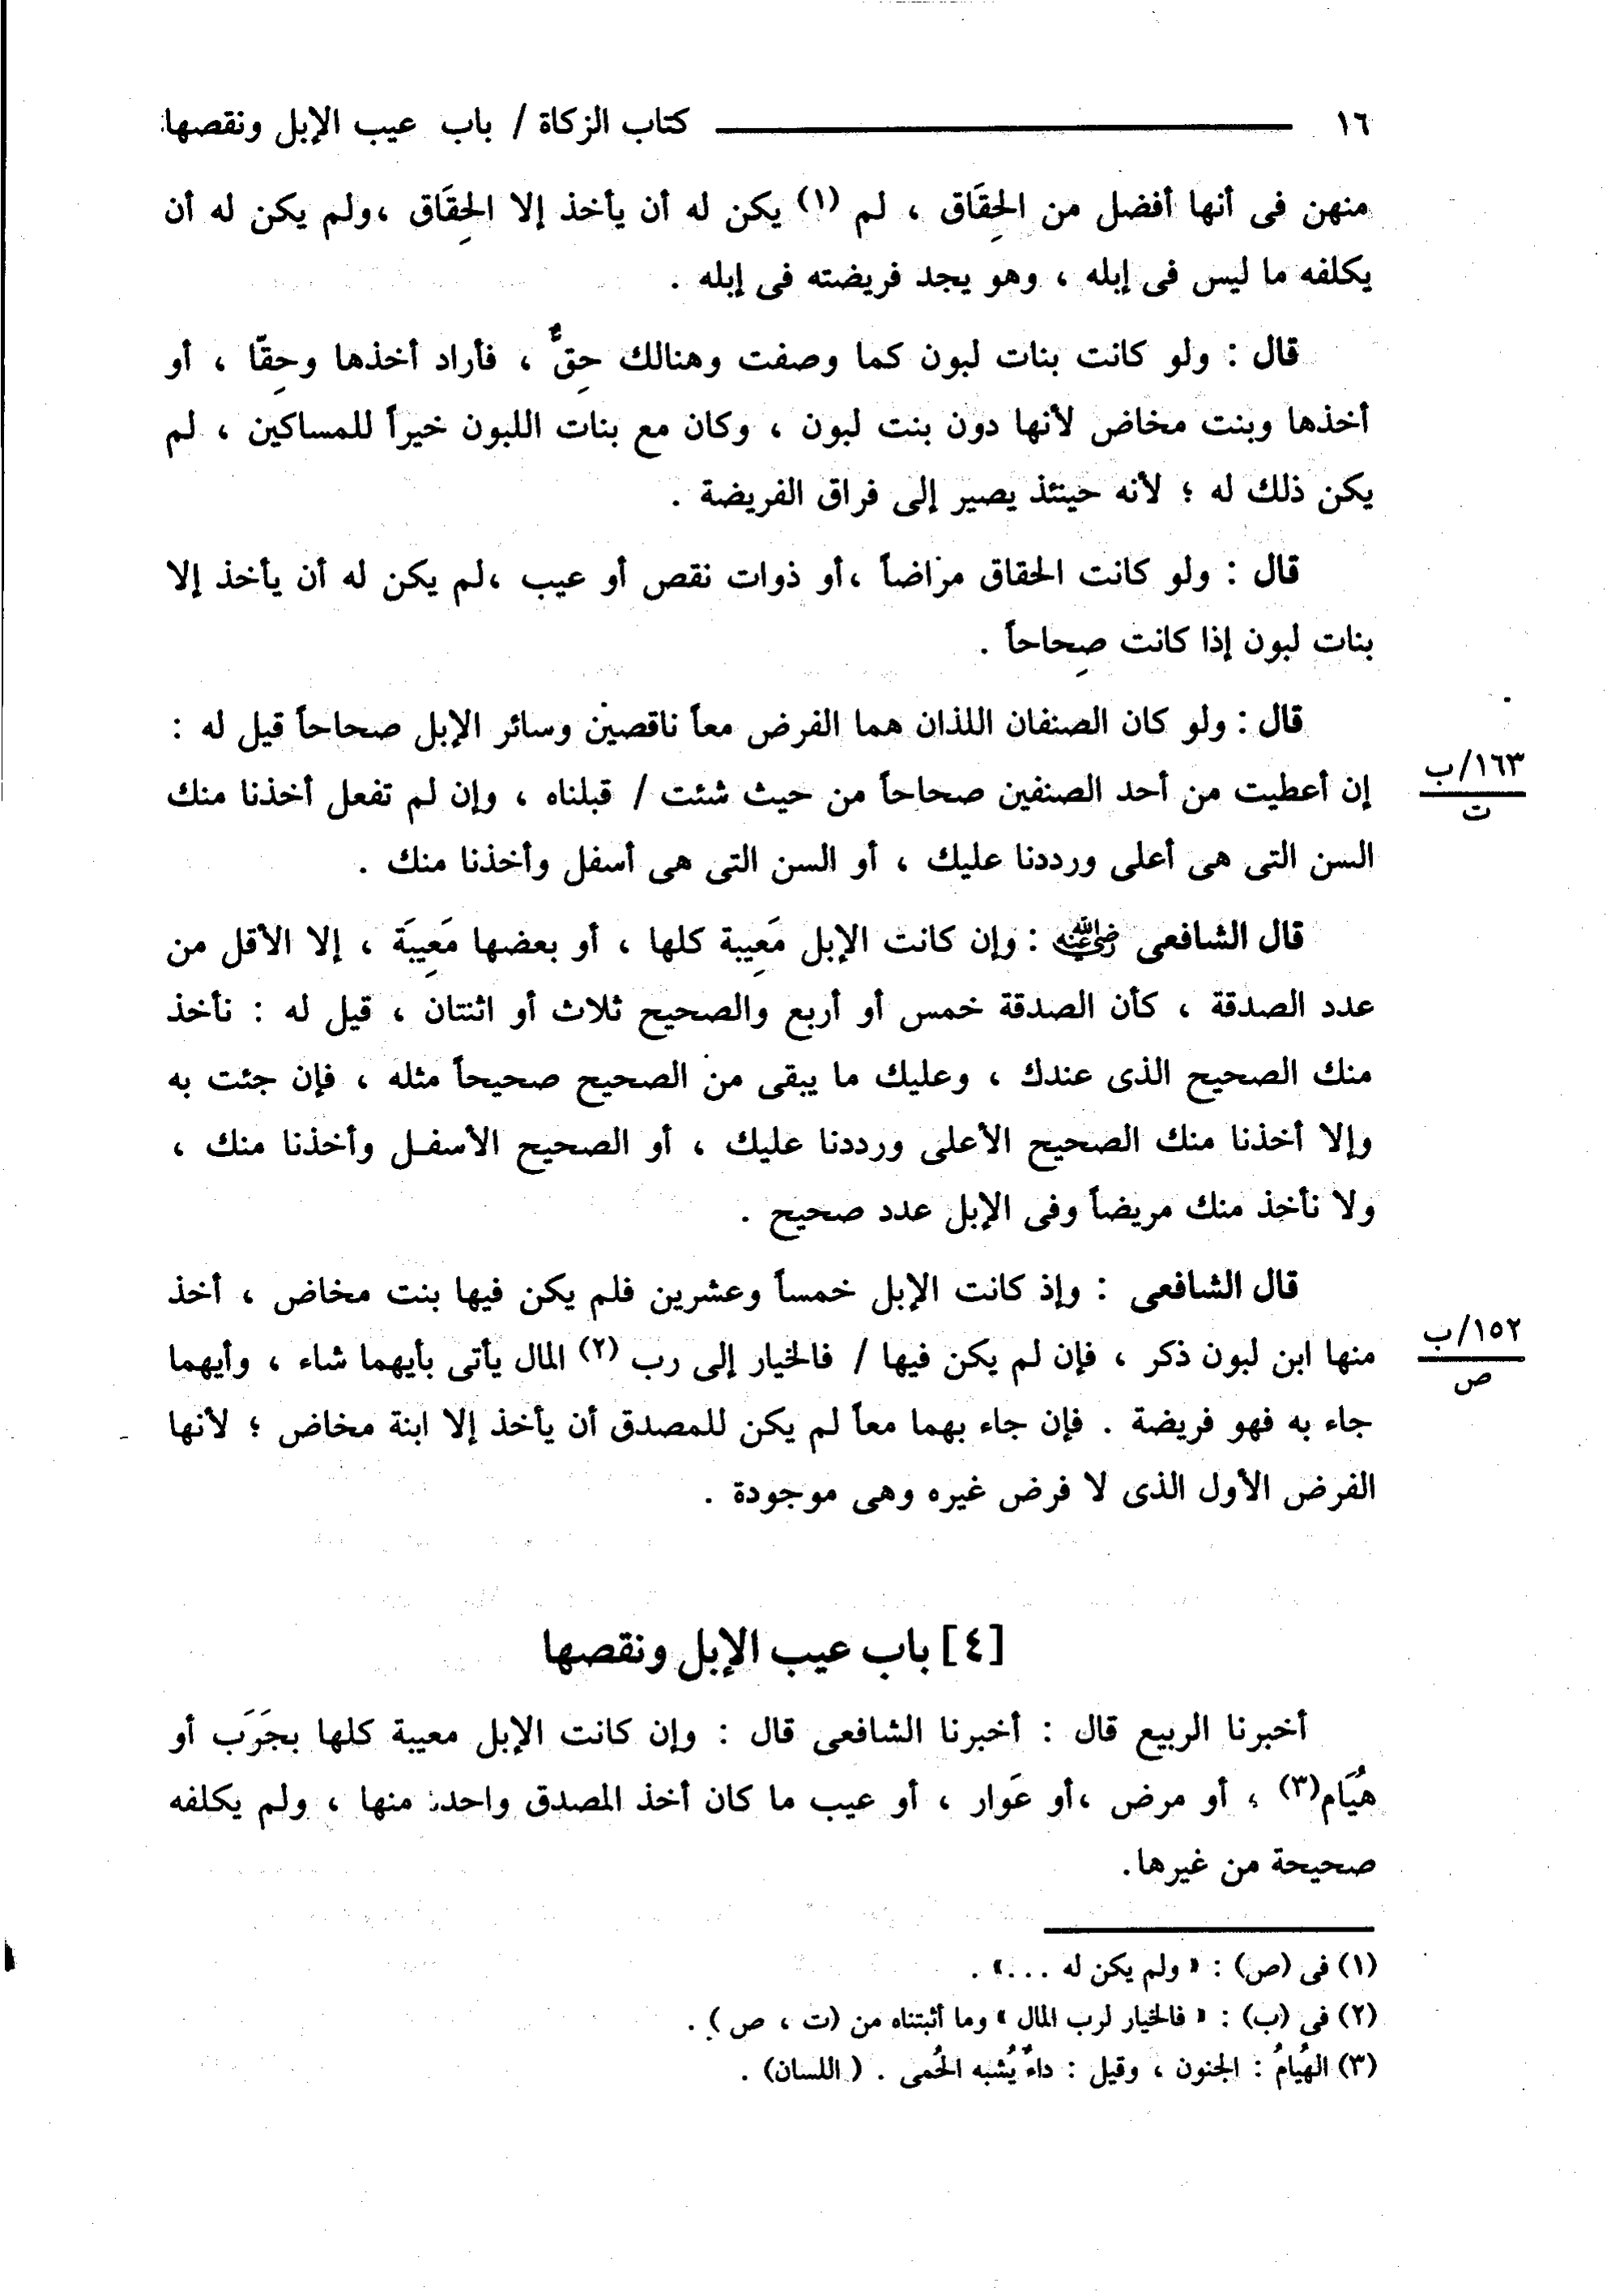 ١٦ كتاب الزكاة / باب عيب الإبل ونقصها
منهن فى أنها أفضل من الحِقَاق ، لم (١) يكن له أن يأخذ إلا الحِقَاق ،ولم يكن له أن
يكلفه ما ليس فى إبله ، وهو يجد فريضته فى إبله .
قال : ولو كانت بنات لبون كما وصفت وهنالك حِقٌّ ، فأراد أخذها وحِقّا ، أو
أخذها وبنت مخاض لأنها دون بنت لبون ، وكان مع بنات اللبون خيراً للمساكين ، لم
يكن ذلك له ؛ لأنه حينئذ يصير إلى فراق الفريضة .
قال : ولو كانت الحقاق مراضاً ،أو ذوات نقص أو عيب ،لم يكن له أن يأخذ إلا
بنات لبون إذا كانت صِحاحاً .
قال : ولو كان الصنفان اللذان هما الفرض معاً ناقصين وسائر الإبل صحاحاً قيل له :
١٦٣/ب
ت
إن أعطيت من أحد الصنفين صحاحاً من حيث شئت / قبلناه ، وإن لم تفعل أخذنا منك
السن التى هى أعلى ورددنا عليك ، أو السن التى هى أسفل وأخذنا منك .
قال الشافعى رضي الله عنه : وإن كانت الإبل مَعِيبة كلها ، أو بعضها مَعِيبَة ، إلا الأقل من
عدد الصدقة ، كأن الصدقة خمس أو أربع والصحيح ثلاث أو اثنتان ، قيل له : نأخذ
منك الصحيح الذى عندك ، وعليك ما يبقى من الصحيح صحيحاً مثله ، فإن جئت به
وإلا أخذنا منك الصحيح الأعلى ورددنا عليك ، أو الصحيح الأسفل وأخذنا منك ،
ولا نأخذ منك مريضاً وفى الإبل عدد صحيح .
قال الشافعى : وإذ كانت الإبل خمساً وعشرين فلم يكن فيها بنت مخاض ، أخذ
١٥٢/ب
ص
منها ابن لبون ذكر ، فإن لم يكن فيها / فالخيار إلى رب (٢) المال يأتى بأيهما شاء ، وأيهما
جاء به فهو فريضة . فإن جاء بهما معاً لم يكن للمصدق أن يأخذ إلا ابنة مخاض ؛ لأنها
الفرض الأول الذى لا فرض غيره وهى موجودة .
[٤] باب عيب الإبل ونقصها
أخبرنا الربيع قال : أخبرنا الشافعى قال : وإن كانت الإبل معيبة كلها بجَرَب أو
هُيَام(٣) ، أو مرض ،أو عَوار ، أو عيب ما كان أخذ المصدق واحدة منها ، ولم يكلفه
صحيحة من غيرها.
(١) فى (ص) : « ولم يكن له ...» .
(٢) فى (ب) : « فالخيار لرب المال » وما أثبتناه من (ت ، ص ) .
(٣) الهُيامُ : الجنون ، وقيل : داءٌ يُشبه الحُمى . ( اللسان) .